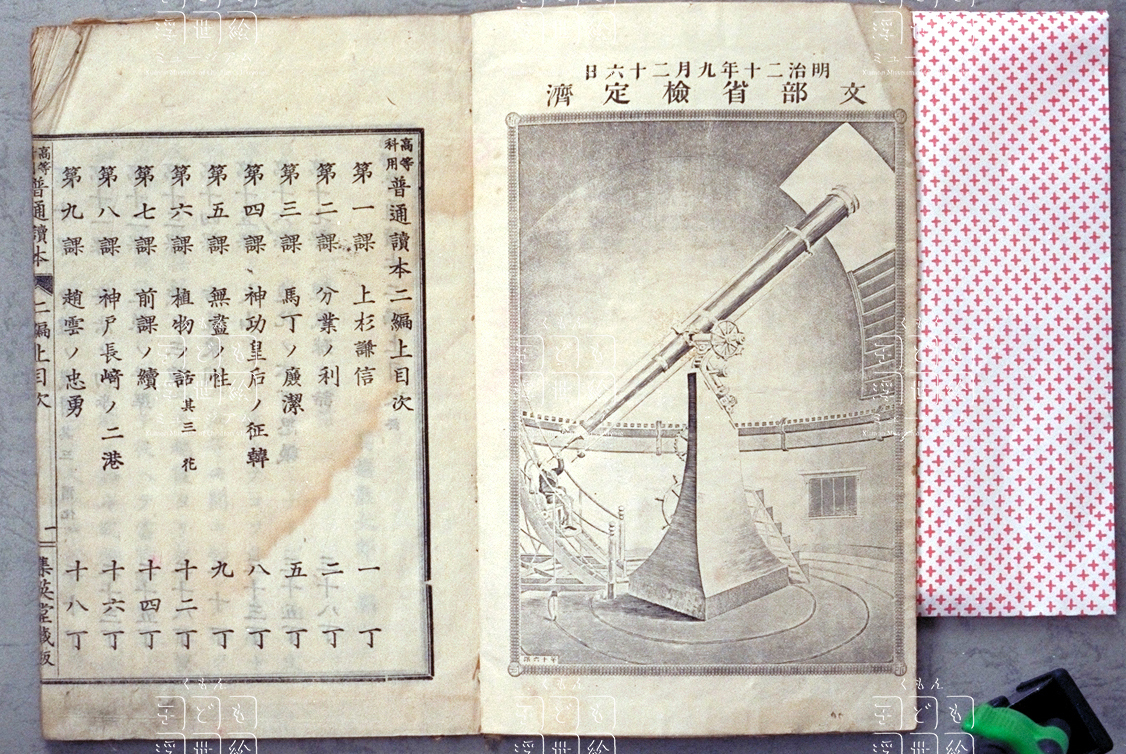 明治二十年九月二十六日
文部省檢定濟
高等科用 普通讀本二編上目次
第一課 上杉謙信 一丁
第二課 分業ノ利 二丁
第三課 馬丁ノ廉潔 五丁
第四課 神功皇后ノ征韓 八丁
第五課 無盡ノ性 九丁
第六課 植物ノ話 其三 花 十二丁
第七課 前課ノ續 十四丁
第八課 神戸長崎ノ二港 十六丁
第九課 趙雲ノ忠勇 十八丁
高等科用 普通讀本 二編上目次 一 集英堂藏版
くもん
子ども
浮世絵
ミュージアム